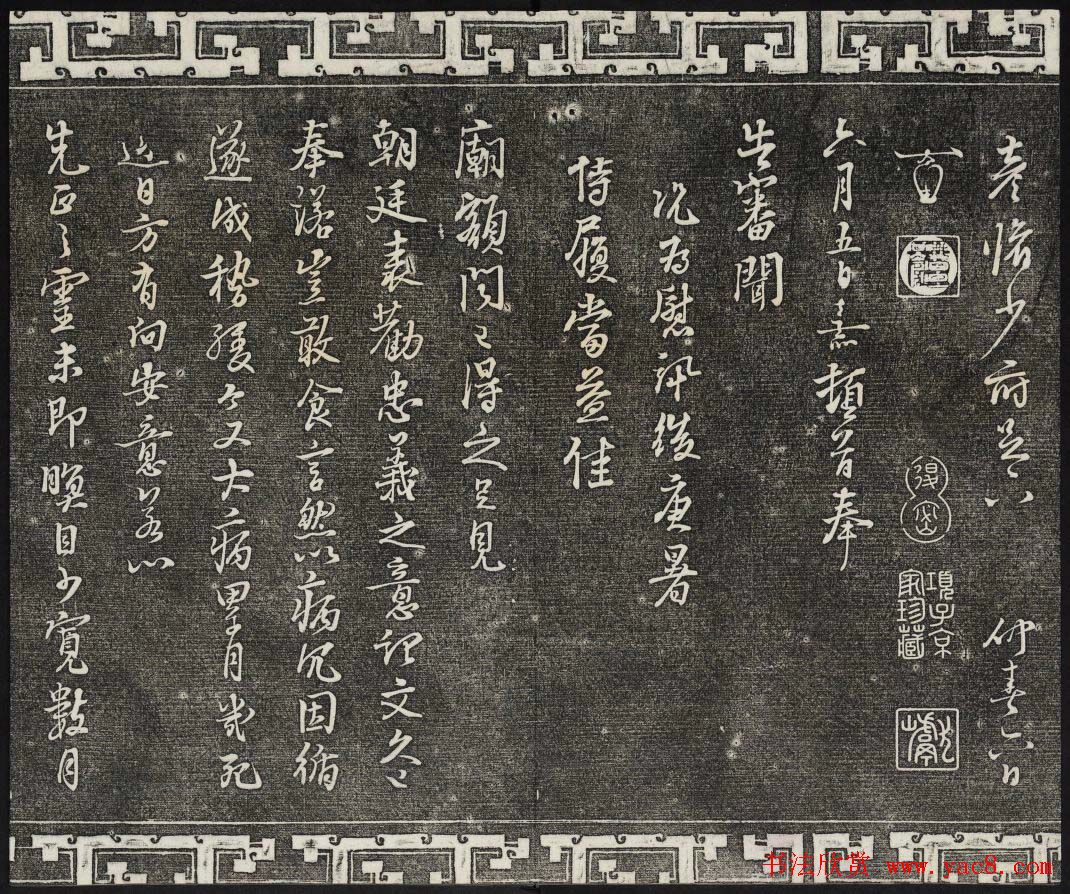 彦脩少府足下 仲春六日
項子京家珍藏
六月五日熹頓首奉
告審聞
況為慰訊後庚暑
侍履當益佳
廟額聞已得之足見
朝廷表勸忠義之意記文久已
奉諾豈敢食言然以病冗因循
遂成稽緩今又大病累月幾死
近日方有向安意若以
先正之靈未即瞑目少寬數月
书法欣赏 www.yac8.com